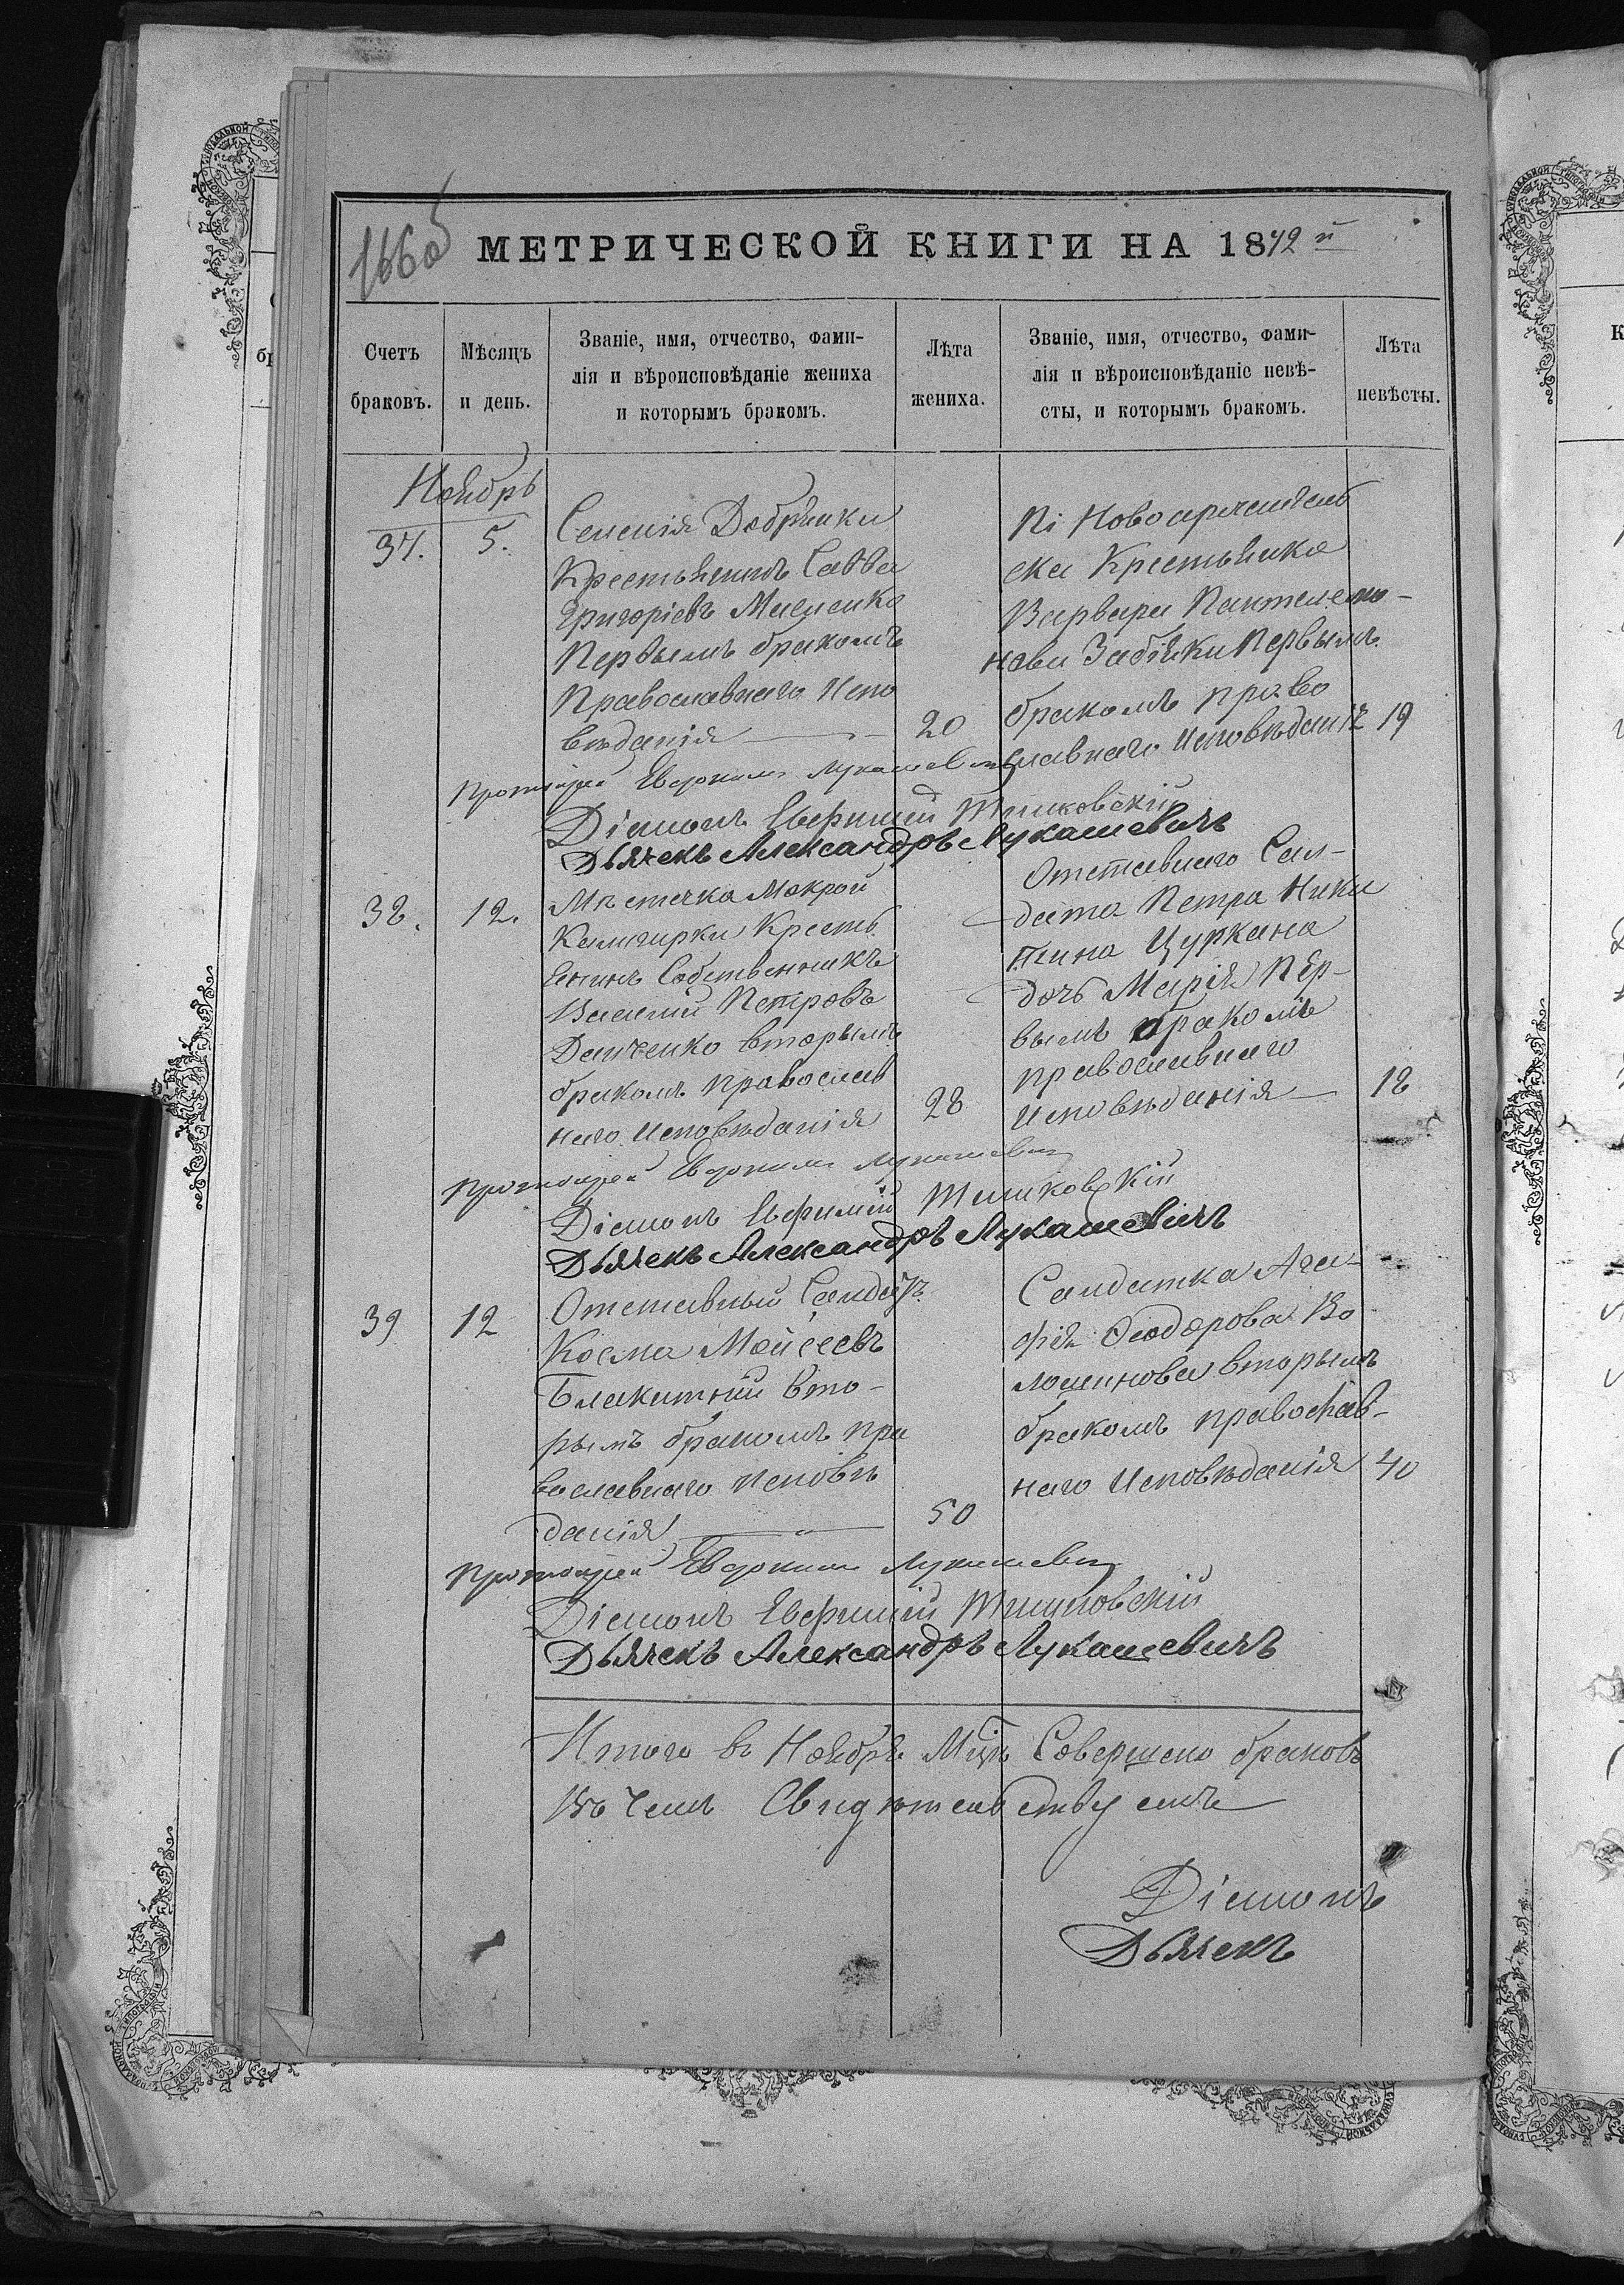 166об
МЕТРИЧЕСКОЙ КНИГИ НА 1872 й
Счетъ браковъ.
Мѣсяцъ и день.
Званіе, имя, отчество, фами-
лія и вѣроисповѣданіе жениха
и которымъ бракомъ.
Лѣта жениха.
Званіе, имя, отчество, фами-
лія и вѣроисповѣданіе невѣ-
сты, и которымъ бракомъ.
Лѣта невѣсты.
Ноябрь
37.
5.
Селенія Добрянки
Крестьянинъ Савва
Григоріевъ
Первымъ бракомъ
Православнаго Испо
вѣданія
20
ска Крестьянка
Варвара Пантелеймо-
нова Первымъ
бракомъ право
славнаго Исповѣданія
19
Протоіерей Евдокимъ Лукашевичъ
Діаконъ Евфимій
Дьячекъ Александръ Лукашевичъ
38.
12.
Мѣстечка Мокрой
Калигирки Кресть
янинъ Собственникъ
Василій Петровъ
вторымъ
бракомъ православ
наго Исповѣданія
28
Отставнаго Сал-
дата Петра Ники
тина Цуркана
дочь Марія Пер-
вымъ бракомъ
православнаго
Исповѣданія
18
Протоіерей Евдокимъ Лукашевичъ
Діаконъ Евфимій
Дьячекъ Александръ Лукашевичъ
39
12
Отставный Салдатъ
Косма Мойсеевъ
Блакитный Вто-
рымъ бракомъ пра
вославнаго Исповѣ
данія
50
Салдатка Ага-
фія Феодорова Во
лошинова вторымъ
бракомъ православ-
наго Исповѣданія
40
Протоіерей Евдокимъ Лукашевичъ
Діаконъ Евфимій
Дьячекъ Александръ Лукашевичъ
Итого въ Ноябрѣ Мцѣ Совершено браковъ
Въ чемъ Свидѣтельствуемъ
Діаконъ
Дьячекъ